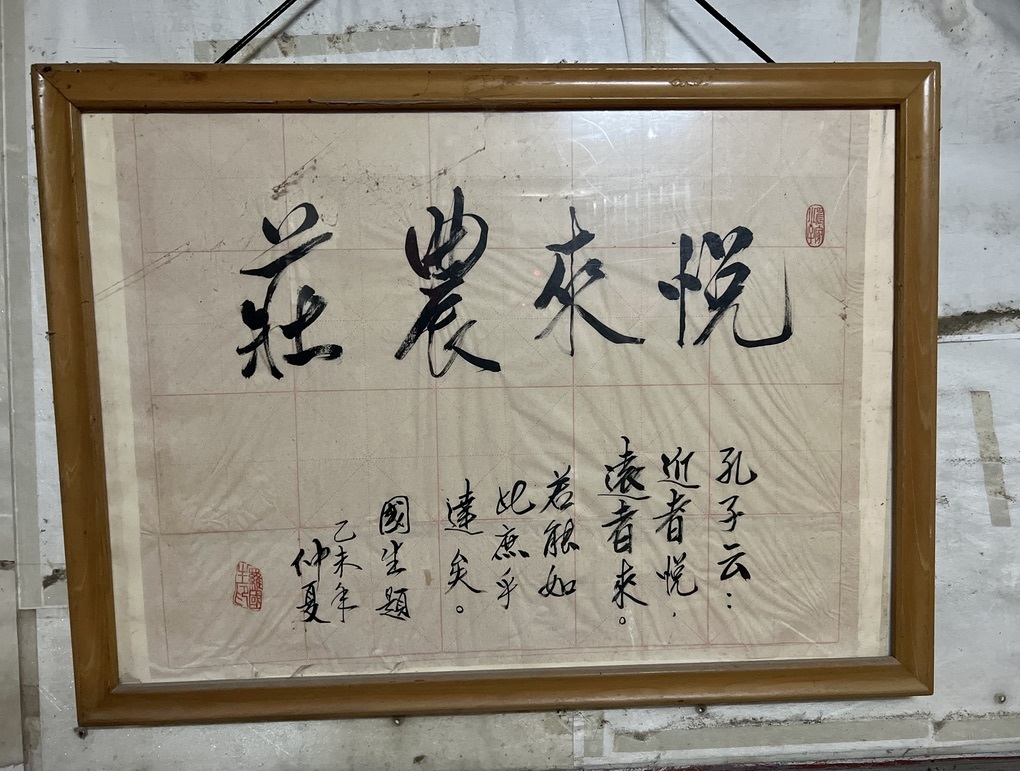 悅來農莊
孔子云：
近者悅，
遠者來。
若能如
此庶乎
達矣。
國生題
乙未年
仲夏